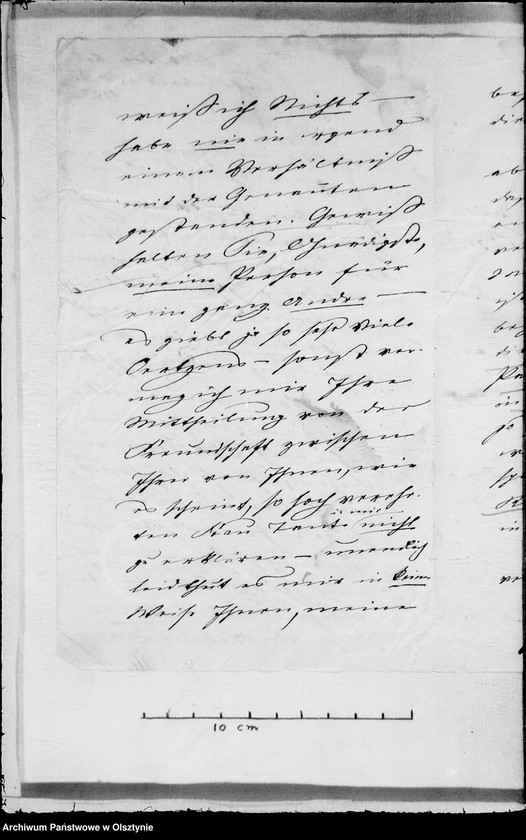 weiß ich Nichts —
habe nie in irgend
einem Verhältniß
mit der Genannten
gestanden. Gewiß
halten Sie, Gnädigste,
meine Person für
eine ganz Andre —
es giebt ja so sehr viele
Oertzens — sonst ver-
mag ich mir Ihre
Mittheilung von der
Freundschaft zwischen
Ihrer von Ihnen, wie
es scheint, so hoch verehr-
ten Frau Tante u mir nicht
zu erklären — unendlich
leid thut es mir in keiner
Weise Ihnen, meine
10 cm
Archiwum Państwowe w Olsztynie